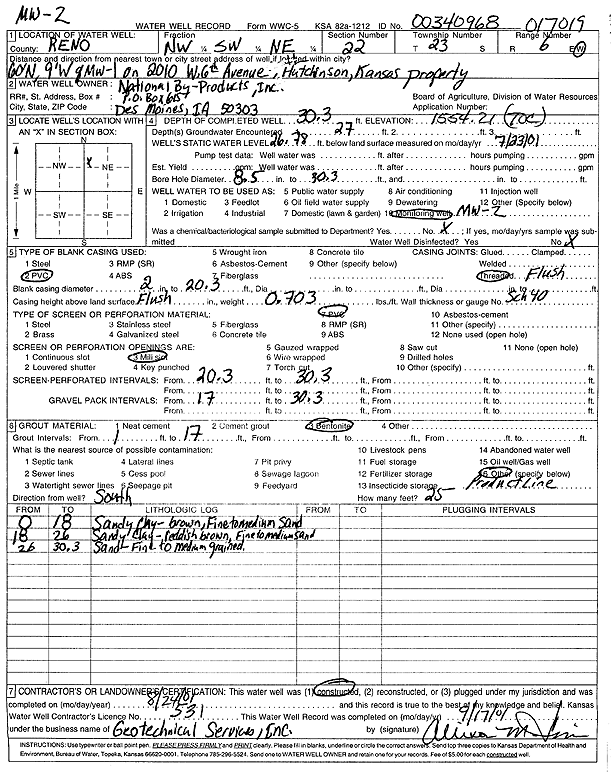 MW-2
WATER WELL RECORD Form WWC-5 KSA 82a-1212 ID No. 00340968 017019
1 LOCATION OF WATER WELL: Fraction Section Number Township Number Range Number
County: RENO NW ¼ SW ¼ NE ¼ 22 T 23 S R 6 E/W
Distance and direction from nearest town or city street address of well, if located within city?
60'N, 9'W of MW-1 on 2010 W. 6th Avenue, Hutchinson, Kansas property
2 WATER WELL OWNER: National By-Products, Inc.
RR#, St. Address, Box # : P.O. Box 657 Board of Agriculture, Division of Water Resources
City, State, ZIP Code : Des Moines, IA 50303 Application Number:
3 LOCATE WELL'S LOCATION WITH AN "X" IN SECTION BOX:
N
NW NE
W E
SW SE
S
1 Mile
X
4 DEPTH OF COMPLETED WELL 30.3 ft. ELEVATION: 1554.21 (TOC)
Depth(s) Groundwater Encountered 1 27 ft. 2. ft. 3. ft.
WELL'S STATIC WATER LEVEL 20.78 ft. below land surface measured on mo/day/yr 7/23/01
Pump test data: Well water was ft. after hours pumping gpm
Est. Yield gpm: Well water was ft. after hours pumping gpm
Bore Hole Diameter 8.5 in. to 30.3 ft., and in. to ft.
WELL WATER TO BE USED AS: 5 Public water supply 8 Air conditioning 11 Injection well
1 Domestic 3 Feedlot 6 Oil field water supply 9 Dewatering 12 Other (Specify below)
2 Irrigation 4 Industrial 7 Domestic (lawn & garden) 10 Monitoring well MW-2
Was a chemical/bacteriological sample submitted to Department? Yes No X ; If yes, mo/day/yrs sample was submitted
Water Well Disinfected? Yes No X
5 TYPE OF BLANK CASING USED: 5 Wrought iron 8 Concrete tile CASING JOINTS: Glued Clamped
1 Steel 3 RMP (SR) 6 Asbestos-Cement 9 Other (specify below) Welded
2 PVC 4 ABS 7 Fiberglass Threaded Flush
Blank casing diameter 2 in. to 20.3 ft., Dia in. to ft., Dia in. to ft.
Casing height above land surface Flush in., weight 0.703 lbs./ft. Wall thickness or gauge No. Sch 40
TYPE OF SCREEN OR PERFORATION MATERIAL: 7 PVC 10 Asbestos-cement
1 Steel 3 Stainless steel 5 Fiberglass 8 RMP (SR) 11 Other (specify)
2 Brass 4 Galvanized steel 6 Concrete tile 9 ABS 12 None used (open hole)
SCREEN OR PERFORATION OPENINGS ARE: 5 Gauzed wrapped 8 Saw cut 11 None (open hole)
1 Continuous slot 3 Mill slot 6 Wire wrapped 9 Drilled holes
2 Louvered shutter 4 Key punched 7 Torch cut 10 Other (specify) ft.
SCREEN-PERFORATED INTERVALS: From 20.3 ft. to 30.3 ft., From ft. to ft.
From ft. to ft., From ft. to ft.
GRAVEL PACK INTERVALS: From 17 ft. to 30.3 ft., From ft. to ft.
From ft. to ft., From ft. to ft.
6 GROUT MATERIAL: 1 Neat cement 2 Cement grout 3 Bentonite 4 Other
Grout Intervals: From 1 ft. to 17 ft., From ft. to ft., From ft. to ft.
What is the nearest source of possible contamination: 10 Livestock pens 14 Abandoned water well
1 Septic tank 4 Lateral lines 7 Pit privy 11 Fuel storage 15 Oil well/Gas well
2 Sewer lines 5 Cess pool 8 Sewage lagoon 12 Fertilizer storage 16 Other (specify below)
3 Watertight sewer lines 6 Seepage pit 9 Feedyard 13 Insecticide storage Product Line
Direction from well? South How many feet? 25
FROM TO LITHOLOGIC LOG FROM TO PLUGGING INTERVALS
0 18 Sandy Clay - brown, Fine to medium Sand
18 26 Sandy Clay - reddish brown, Fine to medium sand
26 30.3 Sand - Fine to medium grained.
7 CONTRACTOR'S OR LANDOWNER'S CERTIFICATION: This water well was (1) constructed, (2) reconstructed, or (3) plugged under my jurisdiction and was
completed on (mo/day/year) 8/24/01 and this record is true to the best of my knowledge and belief. Kansas
Water Well Contractor's Licence No. 531 This Water Well Record was completed on (mo/day/yr) 9/17/01
under the business name of Geotechnical Services, Inc. by (signature)
INSTRUCTIONS: Use typewriter or ball point pen. PLEASE PRESS FIRMLY and PRINT clearly. Please fill in blanks, underline or circle the correct answers. Send top three copies to Kansas Department of Health and
Environment, Bureau of Water, Topeka, Kansas 66620-0001. Telephone 785-296-5524. Send one to WATER WELL OWNER and retain one for your records. Fee of $5.00 for each constructed well.